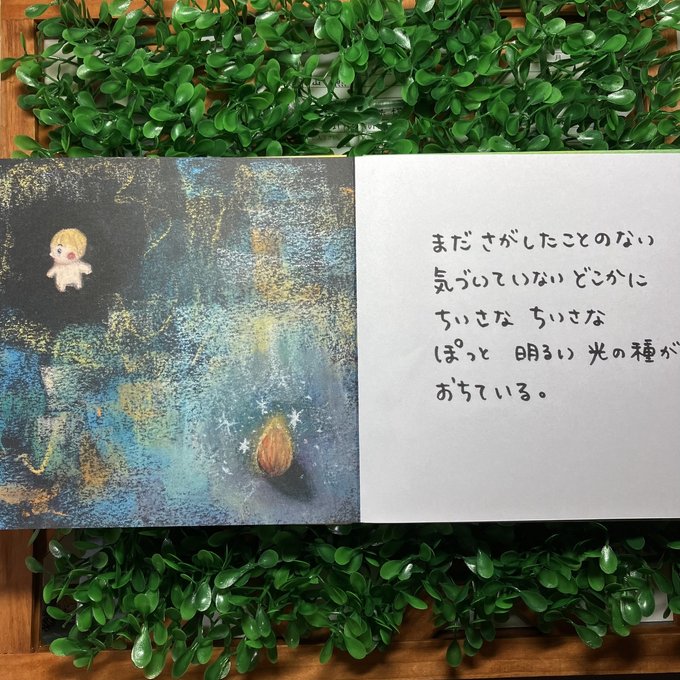 まだ さがしたことのない
気づいていない どこかに
ちいさな ちいさな
ぽっと 明るい 光の種が
おちている。